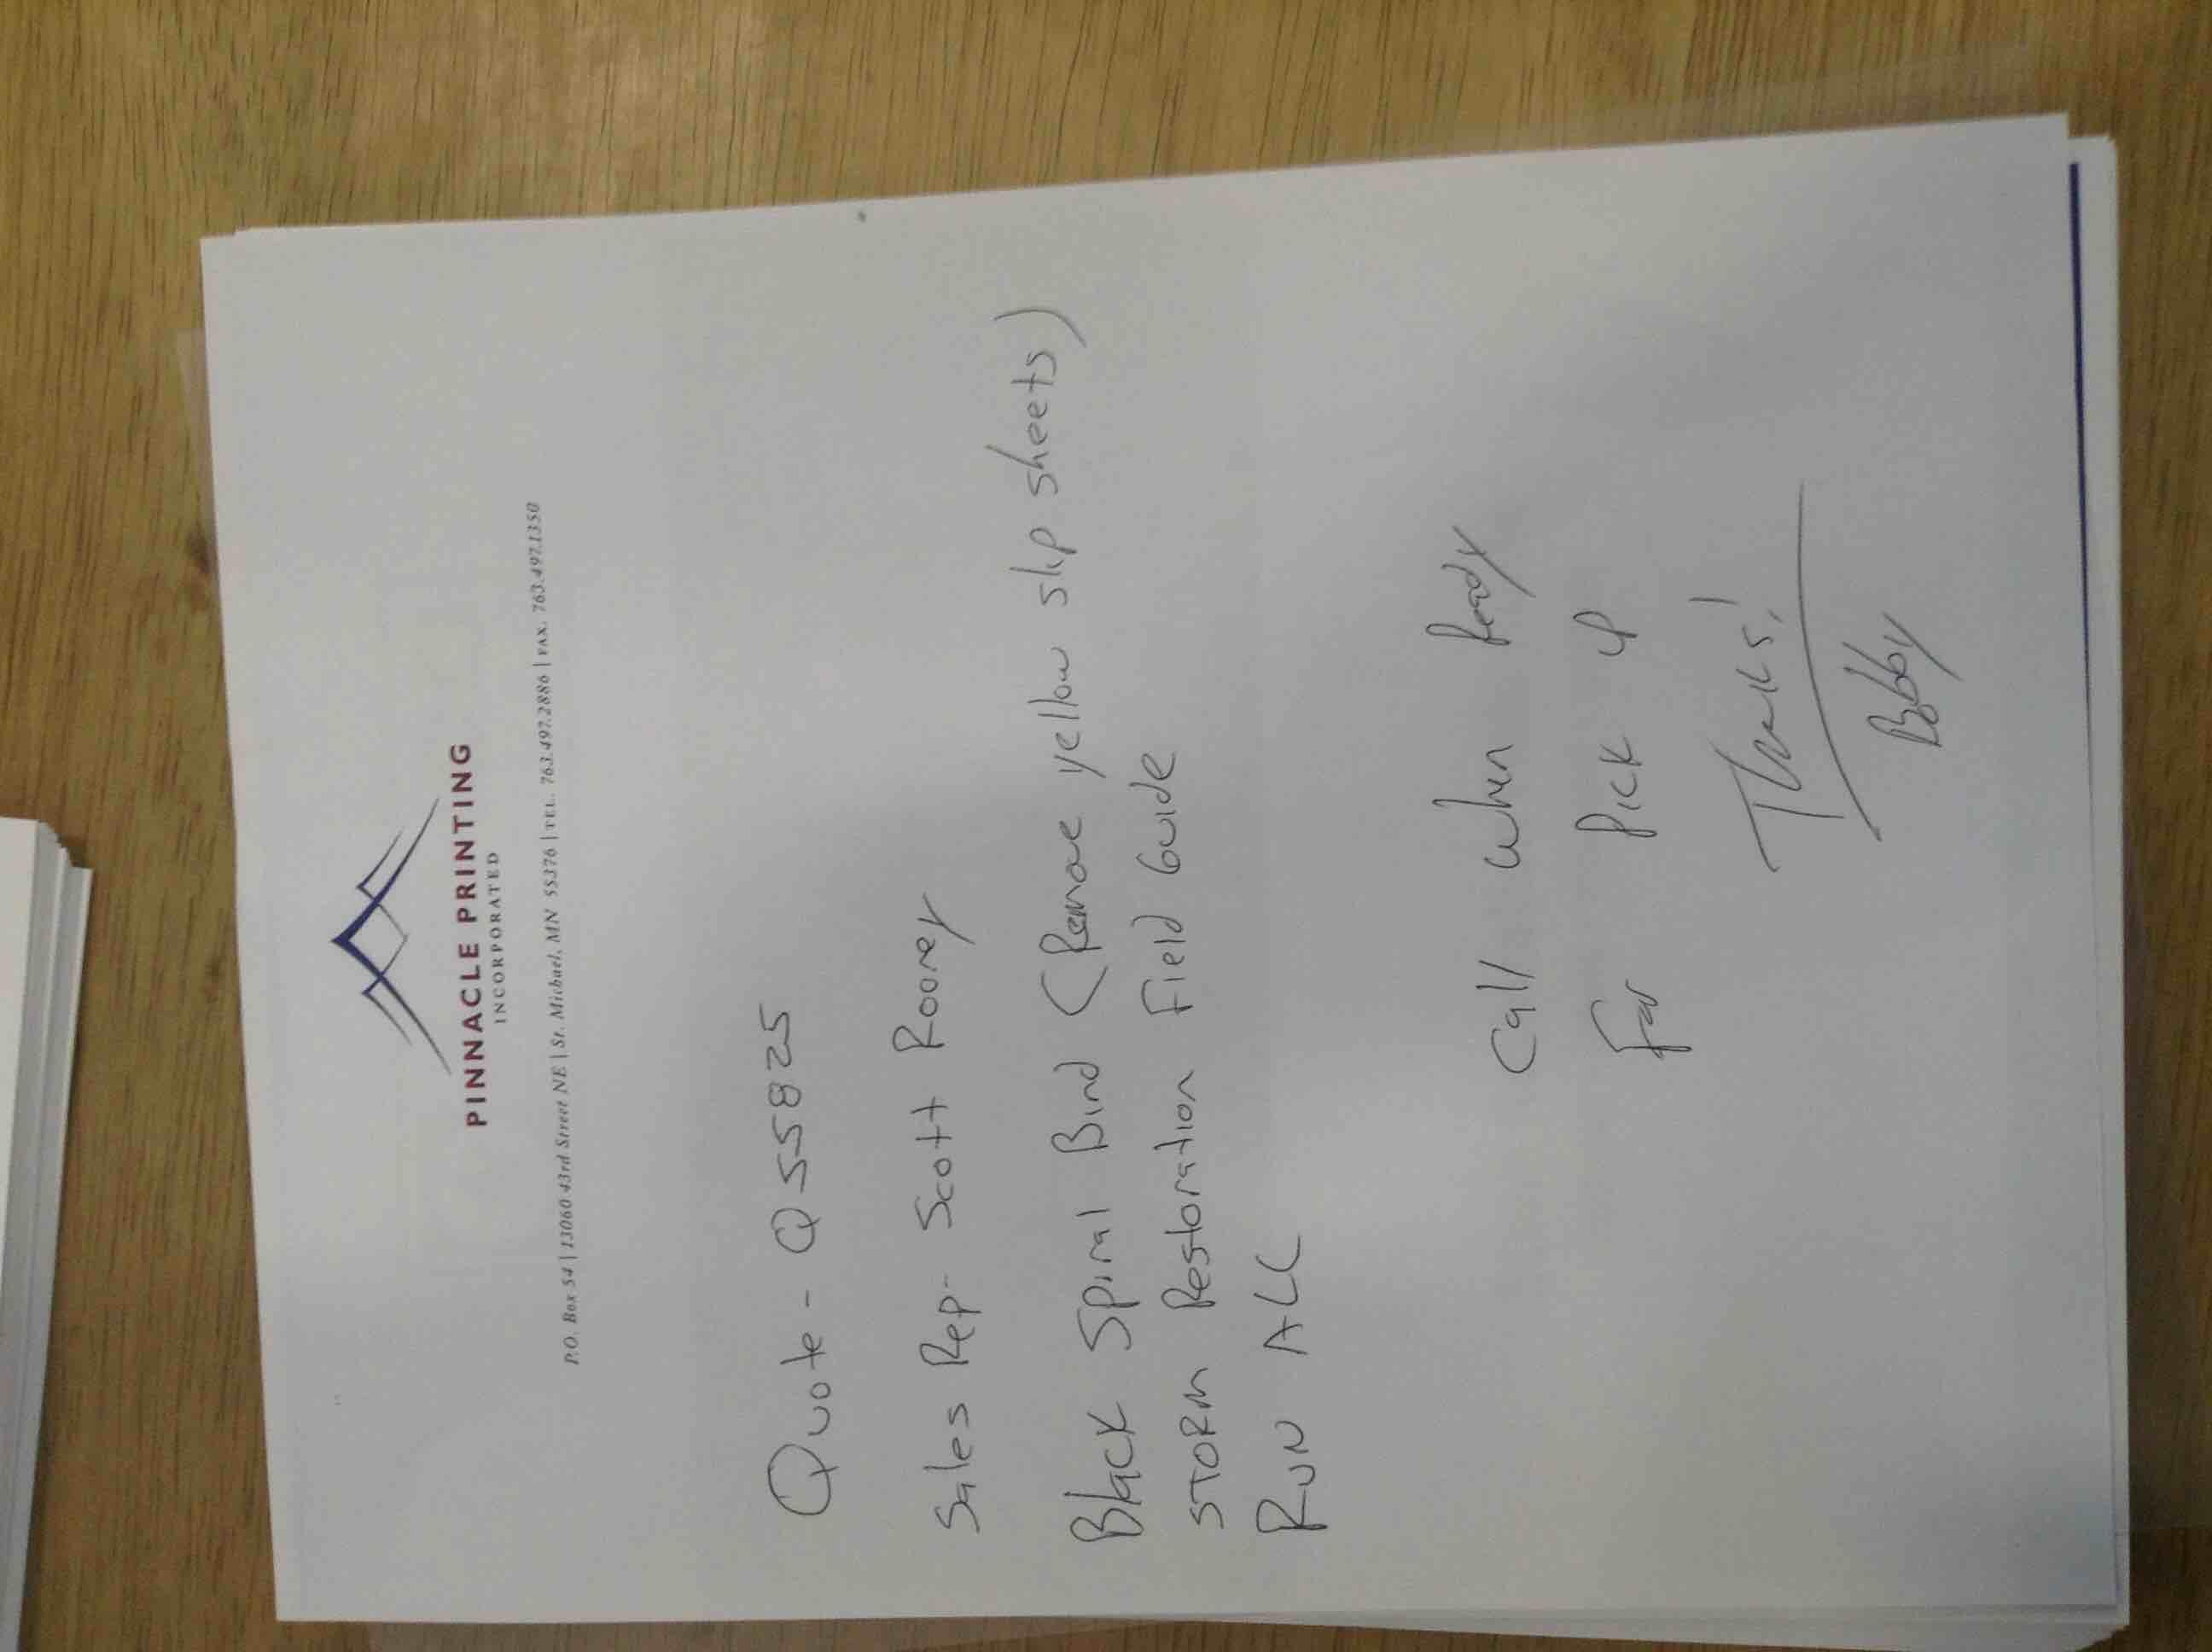 PINNACLE PRINTING
INCORPORATED
P.O. Box 54 | 13060 43rd Street NE | St. Michael, MN 55376 | TEL. 763.497.2886 | FAX. 763.497.1350
Quote - Q55825
Sales Rep - Scott Rooney
Black Spiral Bind (Remove yellow slip sheets)
STORM Restoration Field Guide
RUN ALL
Call when Ready
For Pick up
Thanks!
Bobby